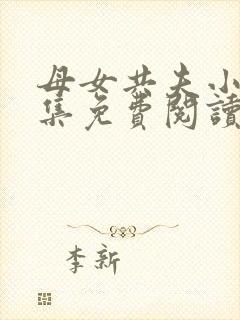 母女共夫小
集免費閱讀
李新